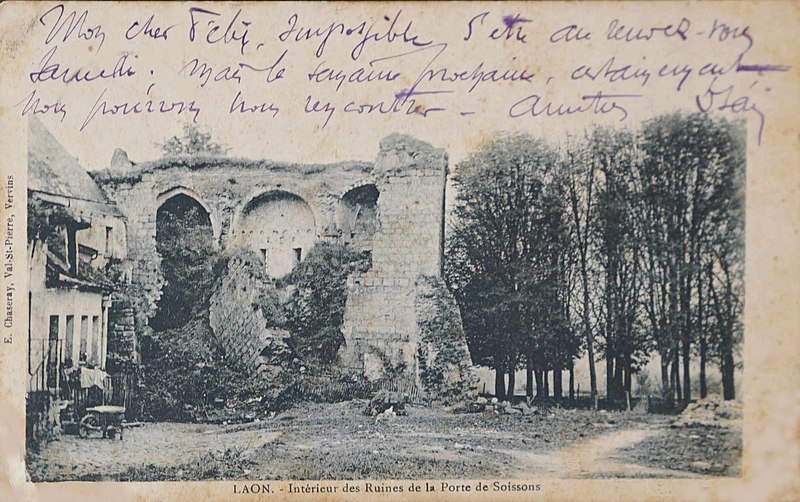 Mon cher Félix, Impossible d'être au rendez-vous
samedi. Mais la semaine prochaine, certainement
nous pourrons nous rencontrer - Amitiés
E. Chaseray, Val-St-Pierre, Vervins
LAON. - Intérieur des Ruines de la Porte de Soissons